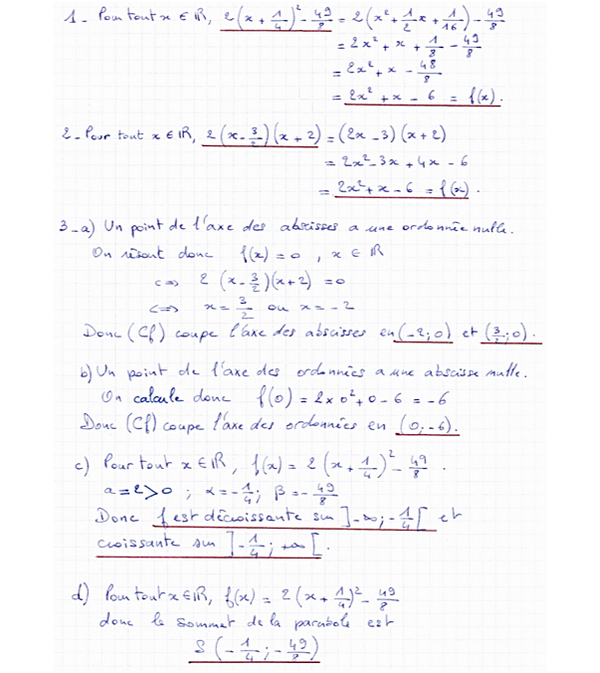 1_ Pour tout x ∈ ℝ, 2(x + 1/4)² - 49/8 = 2(x² + 1/2 x + 1/16) - 49/8
= 2x² + x + 1/8 - 49/8
= 2x² + x - 48/8
= 2x² + x - 6 = f(x).
2_ Pour tout x ∈ ℝ, 2(x - 3/2)(x + 2) = (2x - 3)(x + 2)
= 2x² - 3x + 4x - 6
= 2x² + x - 6 = f(x).
3_a) Un point de l'axe des abscisses a une ordonnée nulle.
On résout donc f(x) = 0 , x ∈ ℝ
<=> 2 (x - 3/2)(x + 2) = 0
<=> x = 3/2 ou x = -2
Donc (Cf) coupe l'axe des abscisses en (-2; 0) et (3/2; 0).
b) Un point de l'axe des ordonnées a une abscisse nulle.
On calcule donc f(0) = 2 x 0² + 0 - 6 = -6
Donc (Cf) coupe l'axe des ordonnées en (0; -6).
c) Pour tout x ∈ ℝ, f(x) = 2(x + 1/4)² - 49/8.
a = 2 > 0 ; α = -1/4 ; β = -49/8
Donc f est décroissante sur ]-∞; -1/4[ et
croissante sur ]-1/4; +∞[.
d) Pour tout x ∈ ℝ, f(x) = 2(x + 1/4)² - 49/8
donc le sommet de la parabole est
S(-1/4; -49/8)